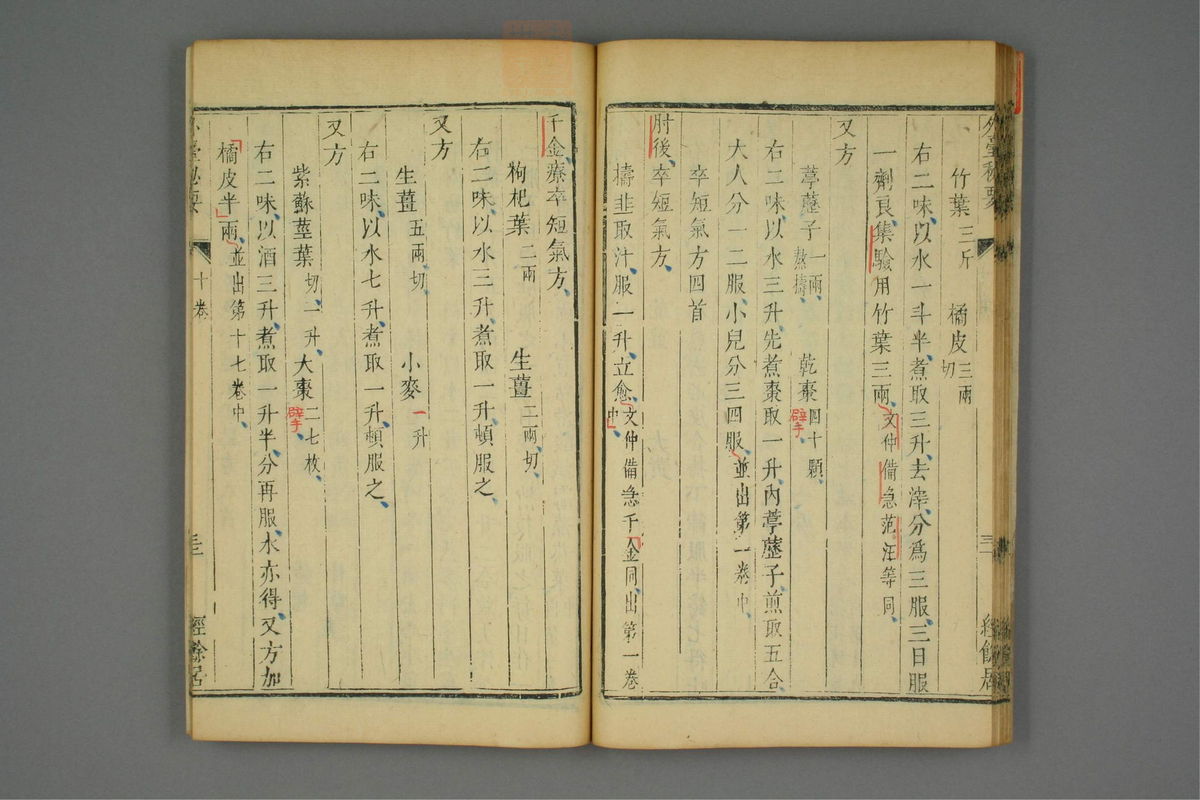 竹葉三斤 橘皮三兩切
右二味以水一斗半煮取三升去滓分爲三服三日服
一劑良集驗用竹葉三兩文仲備急范汪等同
又方
葶藶子一兩熬擣 乾棗四十顆擘手
右二味以水三升先煮棗取一升內葶藶子煎取五合
大人分一二服小兒分三四服並出第一卷中
卒短氣方四首
肘後卒短氣方
擣韭取汁服一升立愈文仲備急千金同出第一卷中
千金療卒短氣方
枸杞葉二兩 生薑二兩切
右二味以水三升煮取一升頓服之
又方
生薑五兩切 小麥一升
右二味以水七升煮取一升頓服之
又方
紫蘇莖葉切二升 大棗二七枚擘手
右二味以酒三升煮取一升半分再服水亦得又方加
橘皮半兩並出第十七卷中
十卷
經餘居
外臺秘要
經餘居